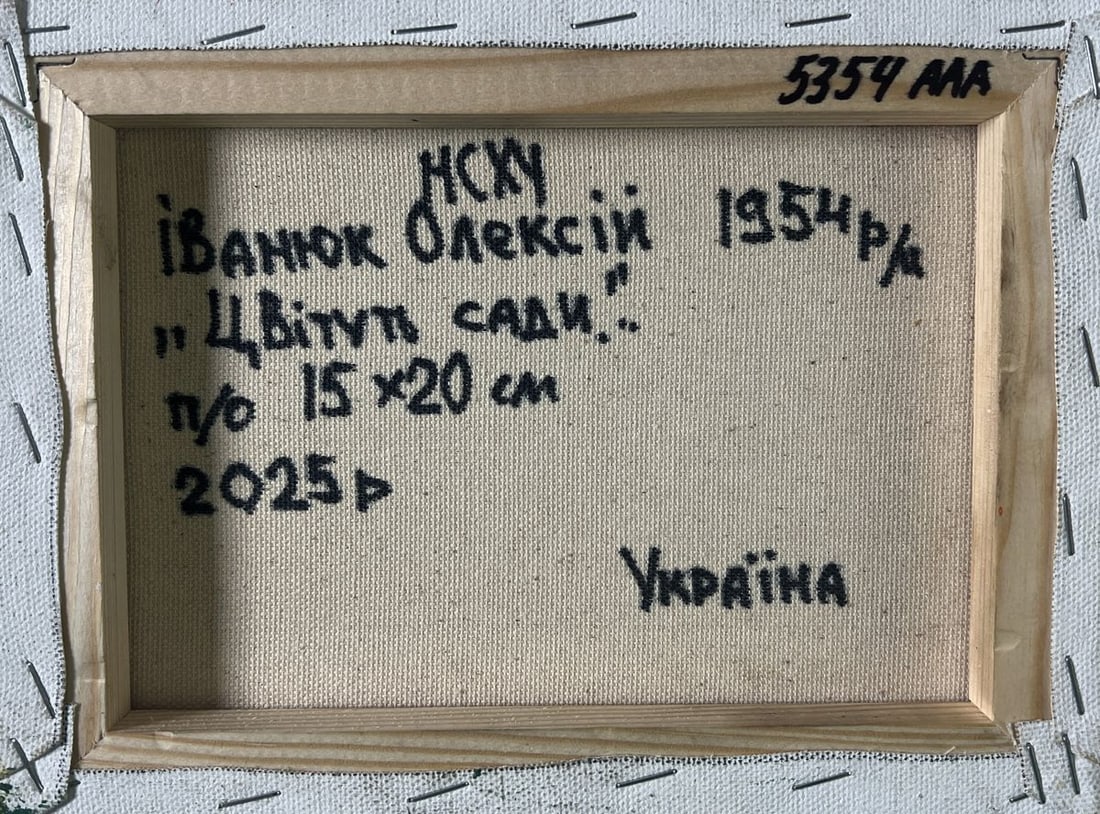 5354 AAA
НСХУ
Іванюк Олексій 1954 р/н
„Цвітуть сади."..
п/о 15×20 см
2025 р
Україна